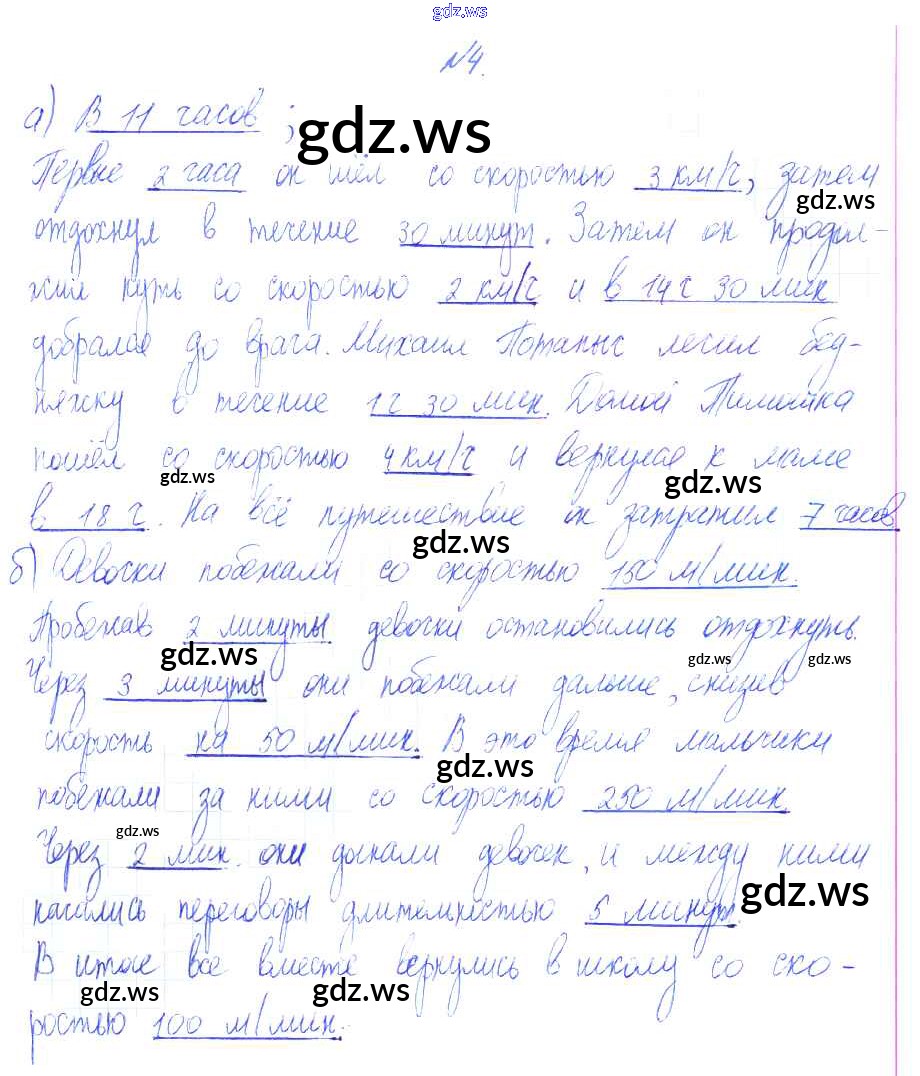 gdz.ws
№4.
а) В 11 часов ;
gdz.ws
Первые 2 часа он шёл со скоростью 3 км/ч, затем
gdz.ws
отдохнул в течение 30 минут. Затем он продол-
жил путь со скоростью 2 км/ч и в 14 ч 30 мин
добрался до врача. Михаил Потапыч лечил бед-
няжку в течение 1 ч 30 мин. Домой Тимошка
пошёл со скоростью 4 км/ч и вернулся к маме
gdz.ws gdz.ws
в 18 ч. На всё путешествие он затратил 7 часов
gdz.ws
б) Девочки побежали со скоростью 150 м/мин.
Пробежав 2 минуты девочки остановились отдохнуть.
gdz.ws gdz.ws gdz.ws
Через 3 минуты они побежали дальше, снизив
скорость на 50 м/мин. В это время мальчики
gdz.ws
побежали за ними со скоростью 250 м/мин.
gdz.ws
Через 2 мин. они догнали девочек, и между ними
gdz.ws
начались переговоры длительностью 5 минут.
В итоге все вместе вернулись в школу со ско-
gdz.ws gdz.ws
ростью 100 м/мин.